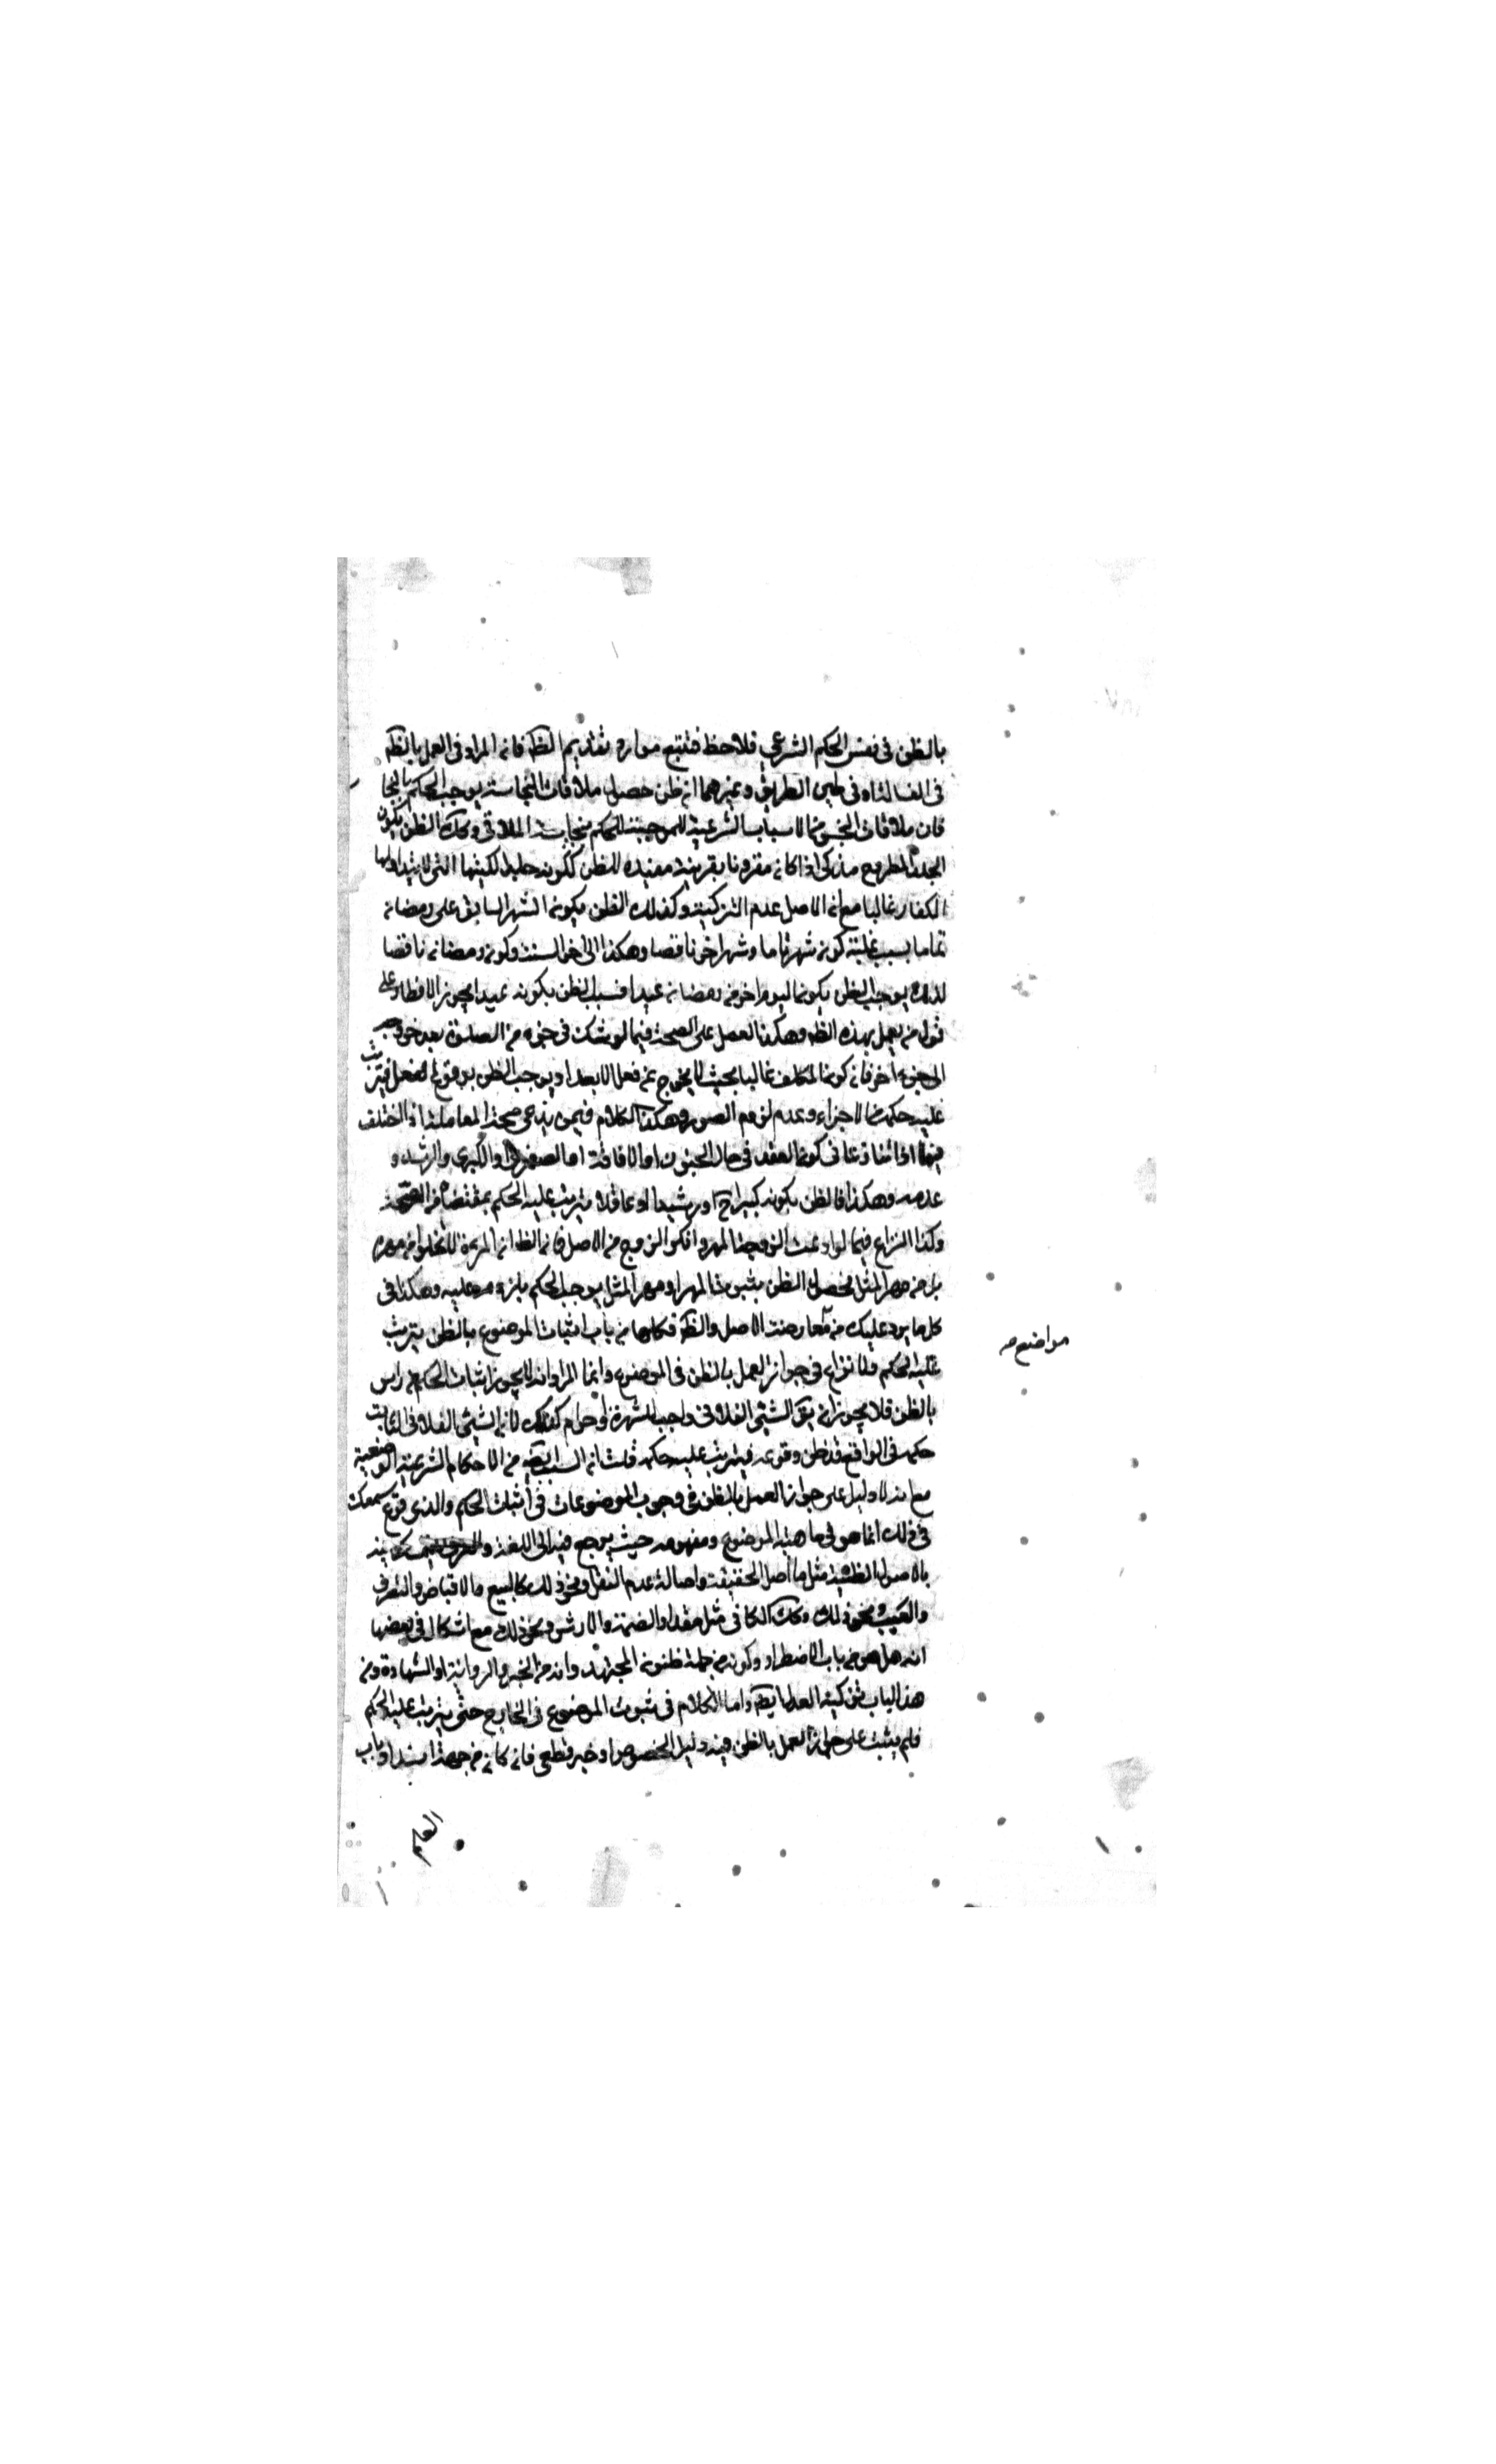 بالظن فى نفس الحكم الشرعي فلاحظ فتتبع موارد تقديم الظ فان المراد فى العمل بالظ
فى الغسالة او فى طين الطريق وغيرهما ان ظن حصول ملاقات النجاسة يوجب الحكم بالنجا
فان ملاقات النجس من الاسباب الشرعية الموجبة للحكم بنجاسة الملاقى وكك الظن بكون
الجلد المطروح مذكى اذا كان مقرونا بقرينة مفيدة للظن ككونه جلدا لكتبها التى لا يتداولها
الكفار غالبا مع ان الاصل عدم التزكية وكذلك الظن بكون الشهر السابق على رمضان
تماما بسبب غلبة كون شهر تاما وشهر اخر ناقصا وهكذا الى اخر السنة وكون رمضان ناقصا
لذلك يوجب الظن بكون اليوم اخر من رمضان عيدا فسبب الظن بكونه عيدا يجوز الافطار على
قول من يعمل بهذه الظ وهكذا العمل على الصحة فيما لو شك فى جزء من الصلوة بعد خروجه
الى جزء اخر فان كون المكلف غالبا بحيث لا يخرج عن فعل الا بعد اد يوجب الظن بوقوع الفعل فيترتب
عليه حكمه من الاجزاء وعدم لزوم العود وهكذا الكلام فيمن يدعى صحة المعاملة اذا اختلف
فيها اذا تنازعا فى كون العقد فى حال الجنون او الافاقة او الصغر او الكبر او الرشد و
عدمه وهكذا فالظن بكونه كبيرا ح او رشيدا او عاقلا يترتب عليه الحكم بمقتضاه من الصحة
وكذا النزاع فيما لو ادعت الزوجة المهر وانكر الزوج من الاصل فان الظ ان المرءة لا تخلو من مهر
بل من مهر المثل فحصول الظن بثبوت المهر او مهر المثل يوجب الحكم بلزومه عليه وهكذا فى
كل ما يرد عليك من معارضة الاصل والظ فكلها من باب اثبات الموضوع بالظن يترتب
مواضيع صح
عليه الحكم ولا نزاع فى جواز العمل بالظن فى الموضوع وانما المراد انه لا يجوز اثبات الحكم من راس
بالظن فلا يجوز ان يق الشئ الفلانى واجب للشهرة او حرام كذلك لا ان الشئ الفلانى الثابت
حكمه فى الواقع قد ظن وقوعه فيترتب عليه حكمه قلت ان السبب ايض من الاحكام الشرعية الوضعية
مع انه لا دليل على جواز العمل بالظن فى وجوب الموضوعات فى اثبات الحكم والذى قرع سمعك
فى ذلك انما هو فى ماهية الموضوع ومفهومه حيث يرجع فيه الى اللغة
بالاصول الظنية مثل اصل الحقيقة واصالة عدم النقل ونحو ذلك كالبيع والاقباض والتصرف
والعيب ونحو ذلك وكك الكافى مثل مقدار الضمنة والارش ونحو ذلك مع اشكال فى بعضها
انه هل هو من باب الاضطرار وكونه من جملة ظنون المجتهد وانه من الخبر والرواية او الشهادة ومن
هذا الباب تزكية العدل ايض واما الكلام فى ثبوت الموضوع فى الخارج حتى يترتب عليه الحكم
فلم يثبت على جواز العمل بالظن فيه دليل بالخصوص او خبر قطعى فان كان من جهة انسداد باب
العلم